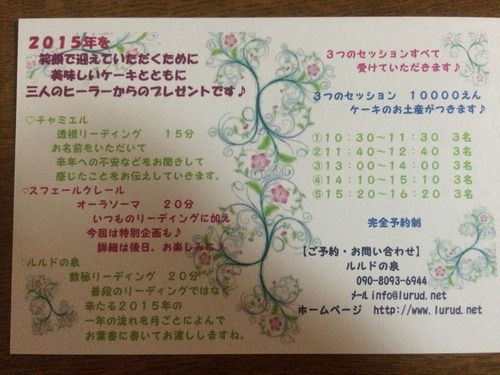 2015年を
笑顔で迎えていただくために
美味しいケーキとともに
三人のヒーラーからのプレゼントです♪
♡チャミエル
透視リーディング 15分
お名前をいただいて
来年への不安などをお聞きして
感じたことをお伝えしていきます。
♡スフェールクレール
オーラソーマ 20分
いつものリーディングに加え
今回は特別企画も♪
詳細は後日、お楽しみに♪
♡ルルドの泉
数秘リーディング 20分
普段のリーディングではなく
来たる2015年の
一年の流れを月ごとによんで
お葉書に書いてお渡ししますね。
3つのセッションすべて
受けていただきます♪
3つのセッション 10000えん
ケーキのお土産がつきます♪
①10:30~11:30 3名
②11:40~12:40 3名
③13:00~14:00 3名
④14:10~15:10 3名
⑤15:20~16:20 3名
完全予約制
【ご予約・お問い合わせ】
ルルドの泉
090-8093-6944
メール info@lurud.net
ホームページ http://www.lurud.net